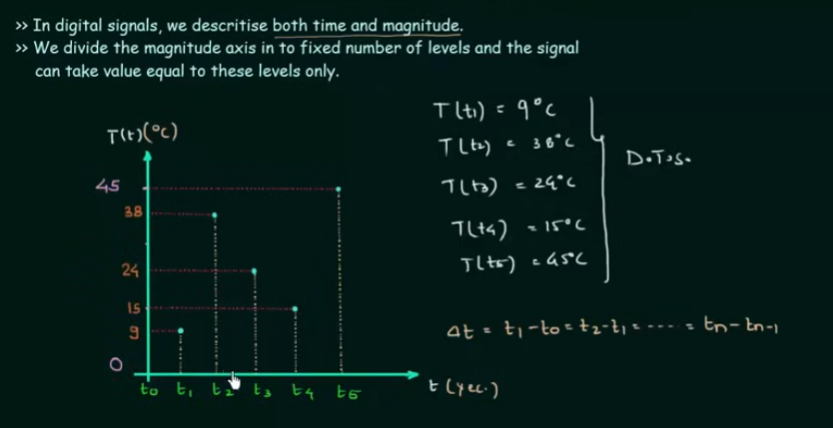 >> In digital signals, we descritise both time and magnitude.
>> We divide the magnitude axis in to fixed number of levels and the signal
can take value equal to these levels only.
T(t)(°C)
45
38
24
15
9
0
t₀ t₁ t₂ t₃ t₄ t₅
t (sec.)
T(t₁) = 9°C
T(t₂) = 38°C
T(t₃) = 24°C
T(t₄) = 15°C
T(t₅) = 45°C
D.T.S.
Δt = t₁-t₀ = t₂-t₁ = ---- = tn-tn-1